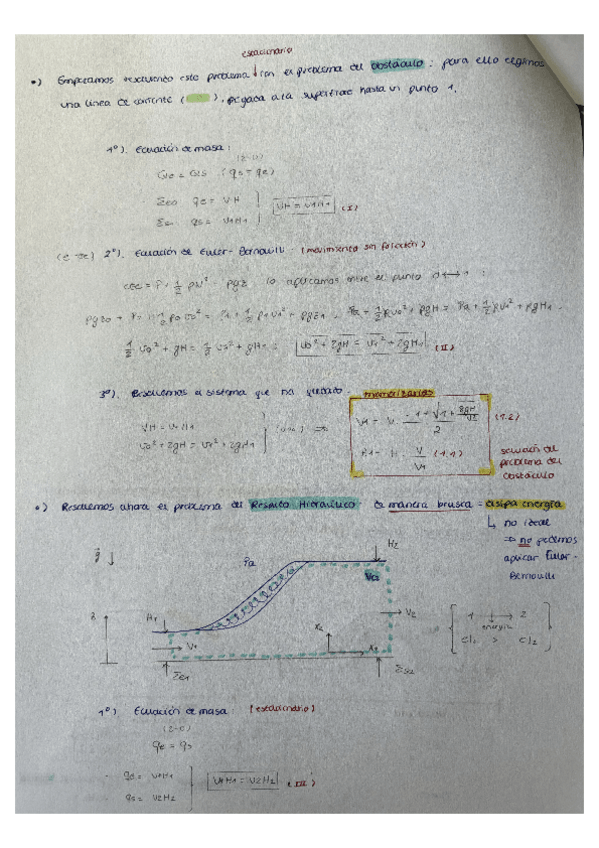 estacionario
•) Empezamos resolviendo este problema con el problema del obstáculo: para ello elegimos
una línea de corriente ( ), pegada a la superficie hasta un punto 1.
1º). Ecuación de masa:
(2-D)
Ge = Gs (qs = qe)
qe = VH
qs = V1H1
VH = V1H1 (I)
2º). Ecuación de Euler-Bernouilli (movimiento sin fricción)
cte = P + 1/2 ρv² + ρgz lo aplicamos entre el punto
1/2 v0² + gH = 1/2 v1² + gH1 =
v0² + 2gH = v1² + 2gH1 (II)
3º). Resolvemos el sistema que nos quedado. memorizarlas
VH = V1H1
v0² + 2gH = v1² + 2gH1
(1.2)
(1.1)
solución del
problema del
obstáculo
•) Resolvemos ahora el problema del Resalto Hidráulico: de manera brusca = disipa energía
↳ no ideal
⇒ no podemos
aplicar Euler-
Bernouilli
g ↓
Pa
H2
Vc
H1
V1
V2
X2
X1
Σe1
Σs2
1 → 2
energía
1º) Ecuación de masa: (estacionario)
(2-D)
qe = qs
qe = V1H1
qs = V2H2
V1H1 = V2H2 (III)